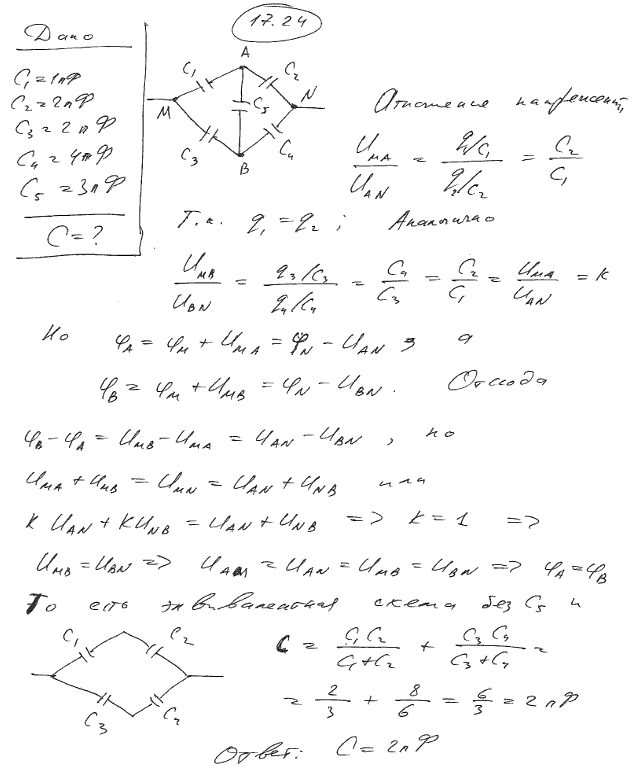 17.24
Дано
C₁=1пФ
C₂=2пФ
C₃=2пФ
C₄=4пФ
C₅=3пФ
C=?
A
C₁ C₂
M C₅ N
C₃ C₄
B
Отношение напряжений
U_MA/U_AN = (q₁/C₁)/(q₂/C₂) = C₂/C₁
Т.к. q₁=q₂ ; Аналогично
U_MB/U_BN = (q₃/C₃)/(q₄/C₄) = C₄/C₃ = C₂/C₁ = U_MA/U_AN = K
Но φ_A = φ_M + U_MA = φ_N − U_AN ; а
φ_B = φ_M + U_MB = φ_N − U_BN . Отсюда
φ_B − φ_A = U_MB − U_MA = U_AN − U_BN , но
U_MA + U_MB = U_MN = U_AN + U_NB или
K U_AN + K U_NB = U_AN + U_NB => K=1 =>
U_MB = U_BN => U_AM = U_AN = U_MB = U_BN => φ_A = φ_B
То есть эквивалентная схема без C₅ и
C₁ C₂
C₃ C₂
C = C₁C₂/(C₁+C₂) + C₃C₄/(C₃+C₄) =
= 2/3 + 8/6 = 6/3 = 2пФ
Ответ: C=2пФ